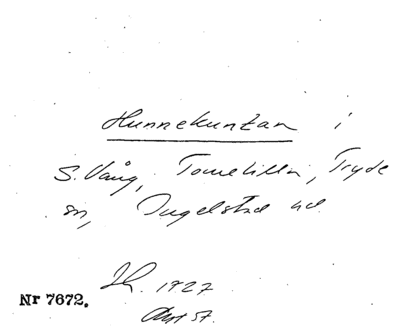 Hunnekuntan i
S. Vång, Tomelilla, Tryde
sn, Ingelstad hd.
1927
Nr 7672.